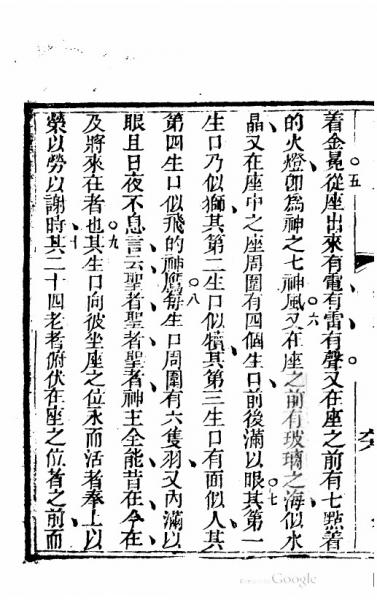 着金冕從座出來有電有雷有聲又在座之前有七點着
的火燈卽為神之七神風又在座之前有玻璃之海似水
晶又在座中之座周圍有四個生口前後滿以眼其第一
生口乃似獅其第二生口似犢其第三生口有面似人其
第四生口似飛的神鷹每生口周圍有六隻羽又內滿以
眼且日夜不息言云聖者聖者聖者神主全能昔在今在
及將來在者也其生口向彼坐座之位永而活者奉上以
榮以勞以謝時其二十四老者俯伏在座之位者之前而
五
六
七
八
九
十
Google